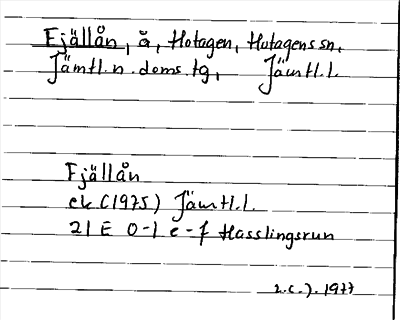 Fjällån, å, Hotagen, Hotagens sn,
Jämtl. n. doms. tg, Jämtl. l.
Fjällån
ek (1975) Jämtl. l.
21 E 0-1 e-f Hasslingsrun
1977